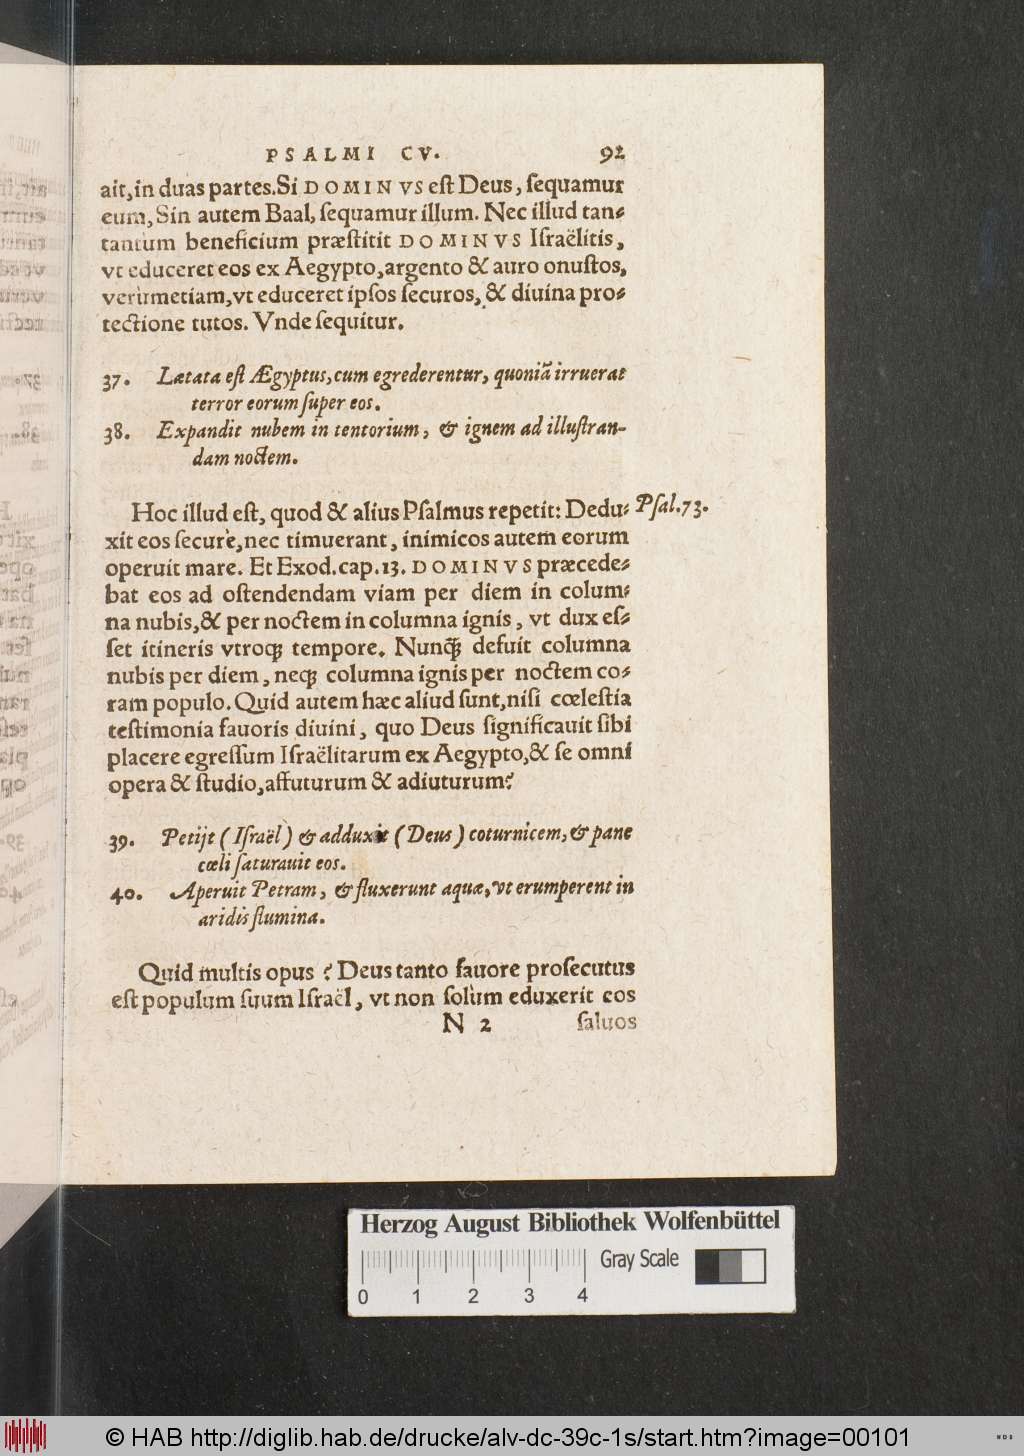 PSALMI CV. 92
ait, in duas partes. Si DOMINVS eſt Deus, ſequamur
eum, Sin autem Baal, ſequamur illum. Nec illud tan⸗
tantum beneficium præſtitit DOMINVS Iſraëlitis,
vt educeret eos ex Aegypto, argento & auro onuſtos,
verùmetiam, vt educeret ipſos ſecuros, & diuina pro⸗
tectione tutos. Vnde ſequitur.
37. Lætata eſt Ægyptus, cum egrederentur, quoniã irruerat
terror eorum ſuper eos.
38. Expandit nubem in tentorium, & ignem ad illuſtran-
dam noctem.
Hoc illud eſt, quod & alius Pſalmus repetit: Dedu⸗ Pſal. 73.
xit eos ſecurè, nec timuerant, inimicos autem eorum
operuit mare. Et Exod. cap. 13. DOMINVS præcede⸗
bat eos ad oſtendendam viam per diem in colum⸗
na nubis, & per noctem in columna ignis, vt dux eſ⸗
ſet itineris vtroqꝫ tempore. Nunꝗ̃ defuit columna
nubis per diem, neqꝫ columna ignis per noctem co⸗
ram populo. Quid autem hæc aliud ſunt, niſi cœleſtia
teſtimonia fauoris diuini, quo Deus ſignificauit ſibi
placere egreſſum Iſraëlitarum ex Aegypto, & ſe omni
opera & ſtudio, affuturum & adiuturum?
39. Petijt (Iſraël) & adduxit (Deus) coturnicem, & pane
cœli ſaturauit eos.
40. Aperuit Petram, & fluxerunt aquæ, vt erumperent in
aridis flumina.
Quid multis opus? Deus tanto fauore proſecutus
eſt populum ſuum Iſraël, vt non ſolùm eduxerit eos
N 2 ſaluos
Herzog August Bibliothek Wolfenbüttel
Gray Scale
0 1 2 3 4
© HAB http://diglib.hab.de/drucke/alv-dc-39c-1s/start.htm?image=00101